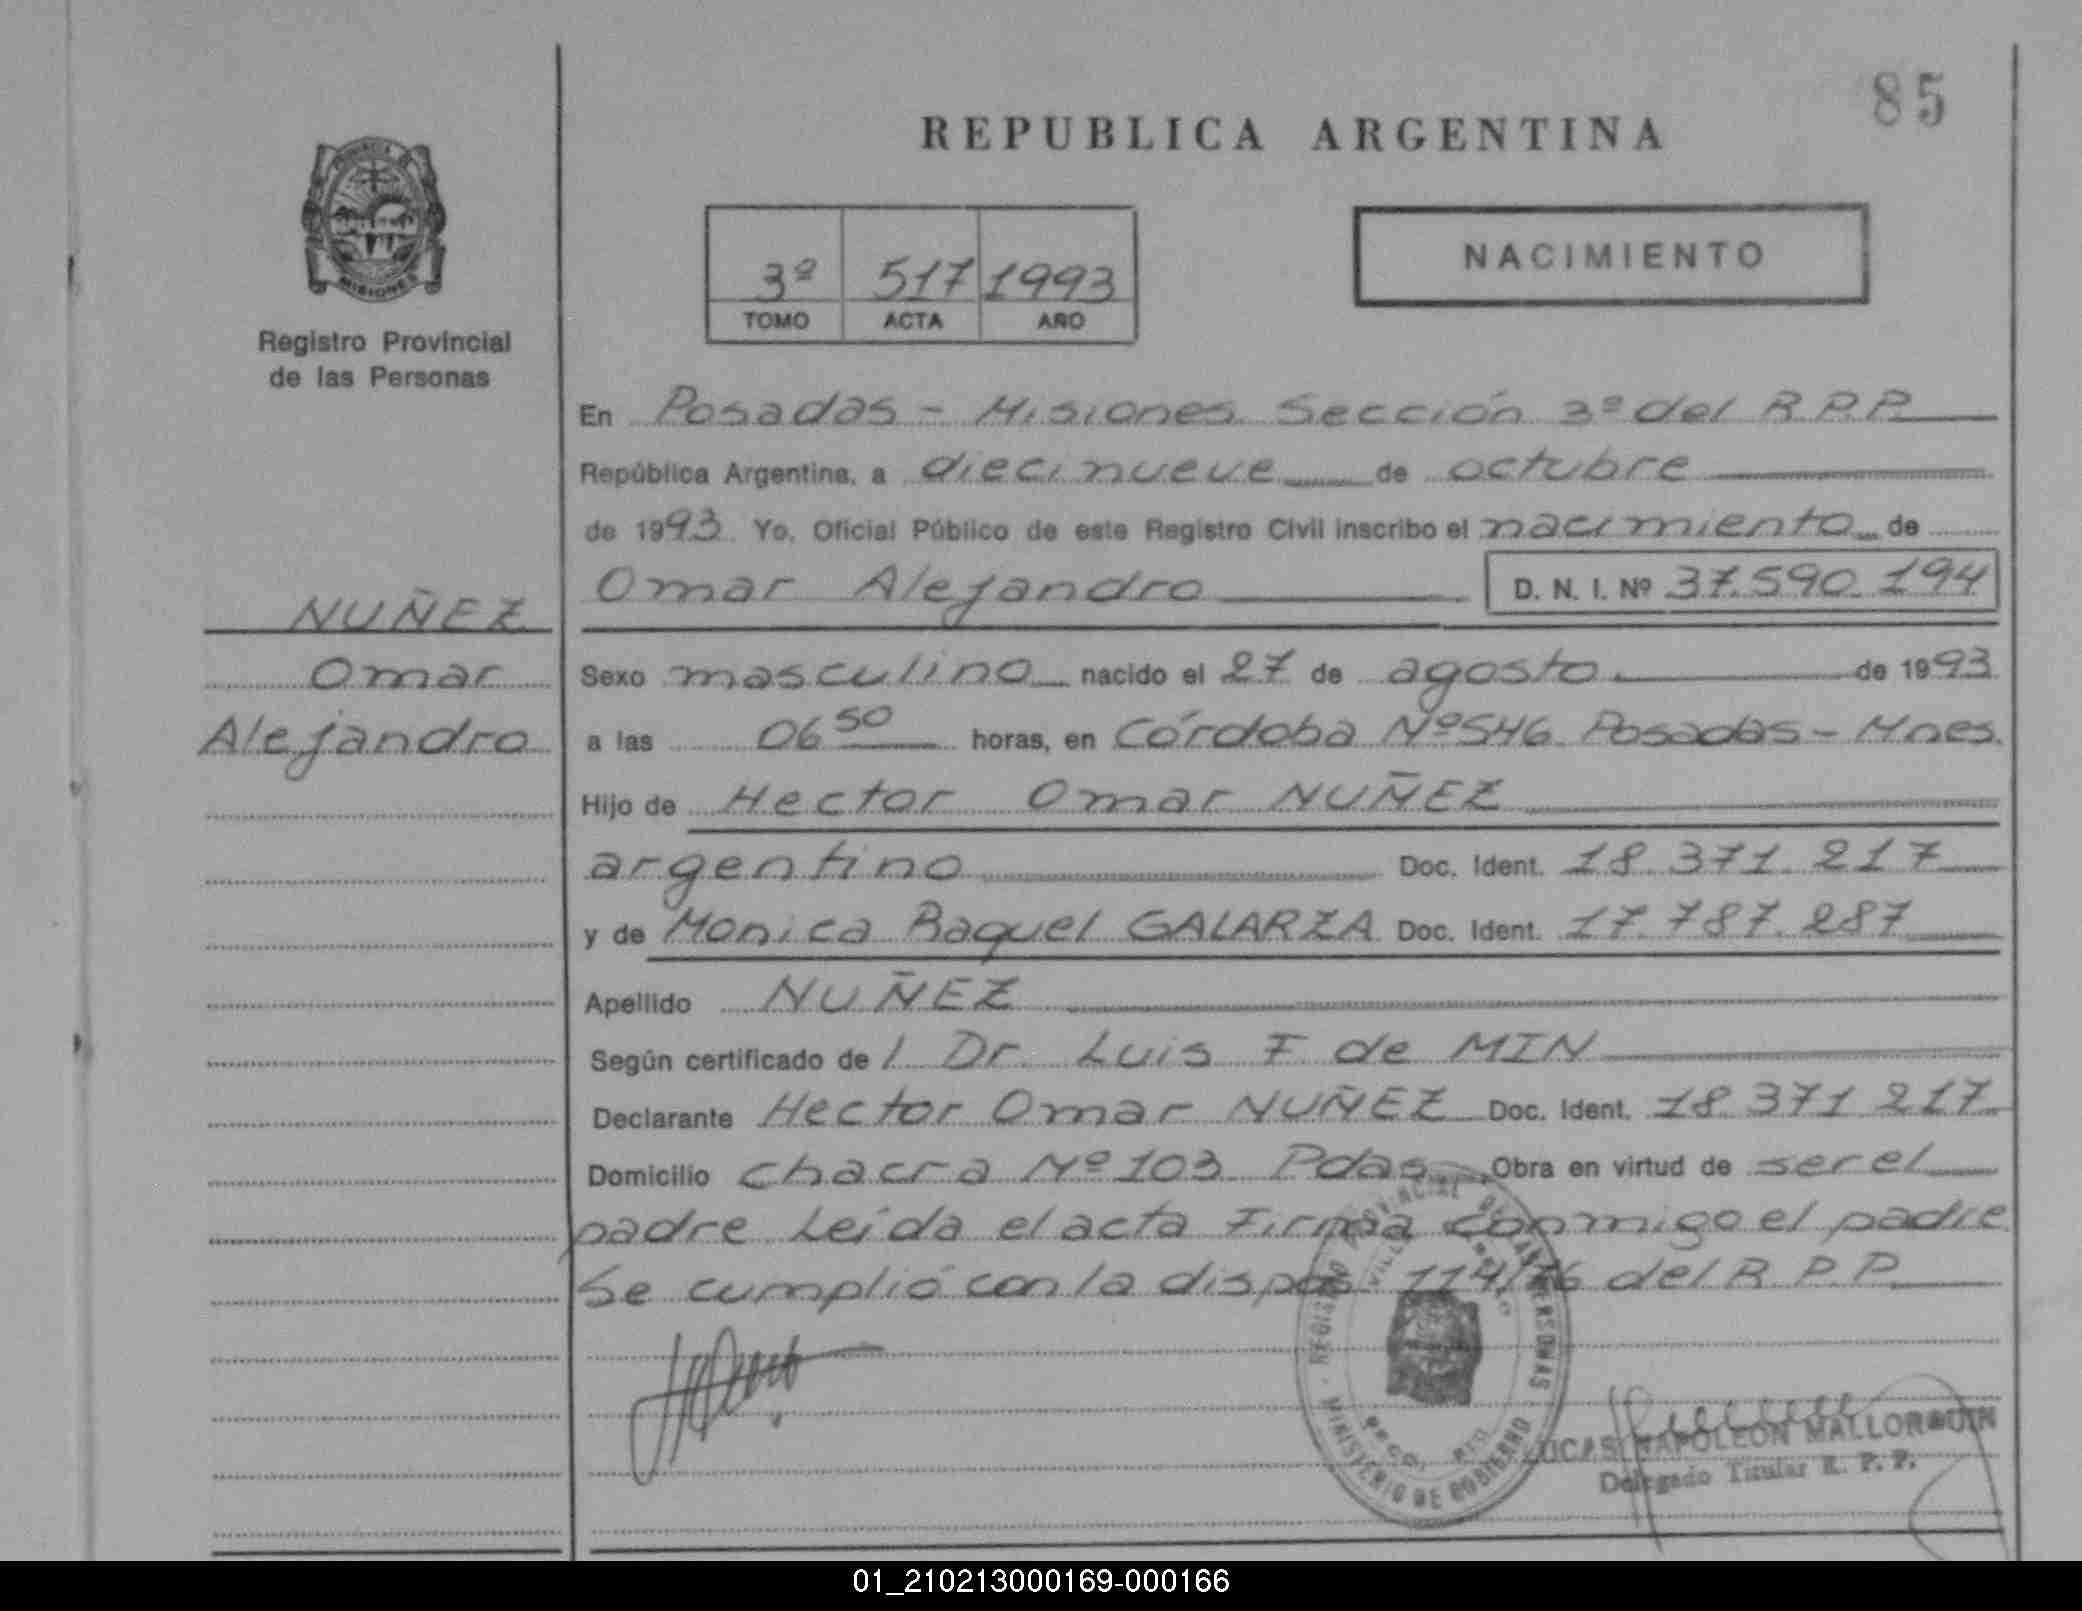 85
REPUBLICA ARGENTINA
NACIMIENTO
3º 517 1993
TOMO ACTA AÑO
PROVINCIA DE
MISIONES
Registro Provincial
de las Personas
En Posadas - Misiones Sección 3º del R.P.P.
República Argentina, a diecinueve de octubre
de 1993 Yo, Oficial Público de este Registro Civil inscribo el nacimiento de
Omar Alejandro D. N. I. Nº 37.590.194
NUÑEZ
Omar
Alejandro
Sexo masculino nacido el 27 de agosto de 1993
a las 06 50 horas, en Córdoba Nº 546 Posadas - Mnes.
Hijo de Hector Omar NUÑEZ
argentino Doc. Ident. 18.371.217
y de Monica Raquel GALARZA Doc. Ident. 17.787.287
Apellido NUÑEZ
Según certificado de l Dr. Luis F. de MIN
Declarante Hector Omar NUÑEZ Doc. Ident. 18.371.217
Domicilio chacra Nº 103 Pdas. Obra en virtud de ser el
padre Leída el acta Firma conmigo el padre
Se cumplió con la dispos. 114/76 del R.P.P.
REGISTRO PROVINCIAL DE LAS PERSONAS
MINISTERIO DE GOBIERNO
LUCAS NAPOLEON MALLORQUIN
Delegado Titular R. P. P.
01_210213000169-000166